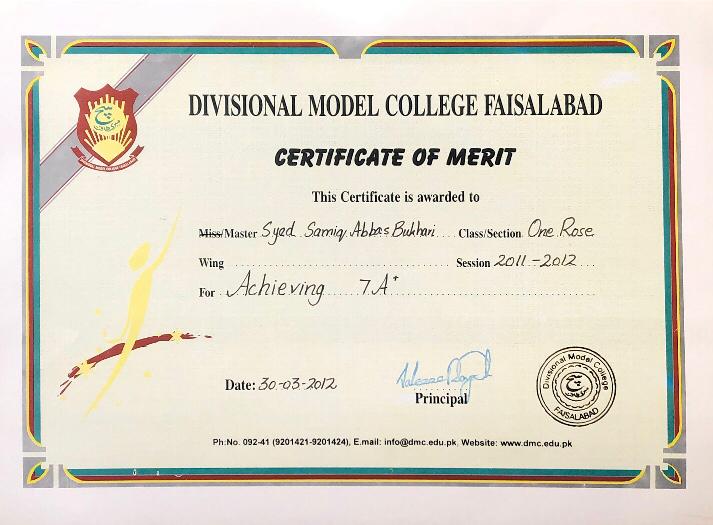 سچ
DIVISIONAL MODEL COLLEGE FAISALABAD
CERTIFICATE OF MERIT
This Certificate is awarded to
Miss/Master Syed Samiq Abbas Bukhari Class/Section One Rose
Wing Session 2011-2012
For Achieving 7.A+
Date: 30-03-2012
Principal
Divisional Model College
سچ
FAISALABAD
Ph:No. 092-41 (9201421-9201424), E.mail: info@dmc.edu.pk, Website: www.dmc.edu.pk